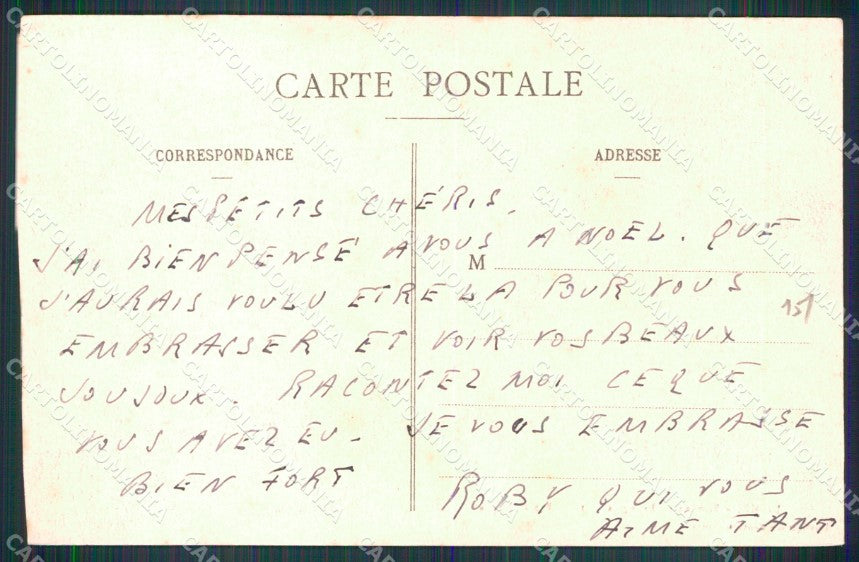 CARTE POSTALE
CORRESPONDANCE
ADRESSE
MES PETITS CHÉRIS.
J'AI BIEN PENSÉ A VOUS A NOEL. QUE
M
J'AURAIS VOULU ETRE LA POUR VOUS
151
EMBRASSER ET VOIR VOS BEAUX
JOUJOUX. RACONTEZ MOI CE QUE
VOUS AVEZ EU. JE VOUS EMBRASSE
BIEN FORT
ROBY QUI VOUS
AIME TANT
CARTOLINOMANIA